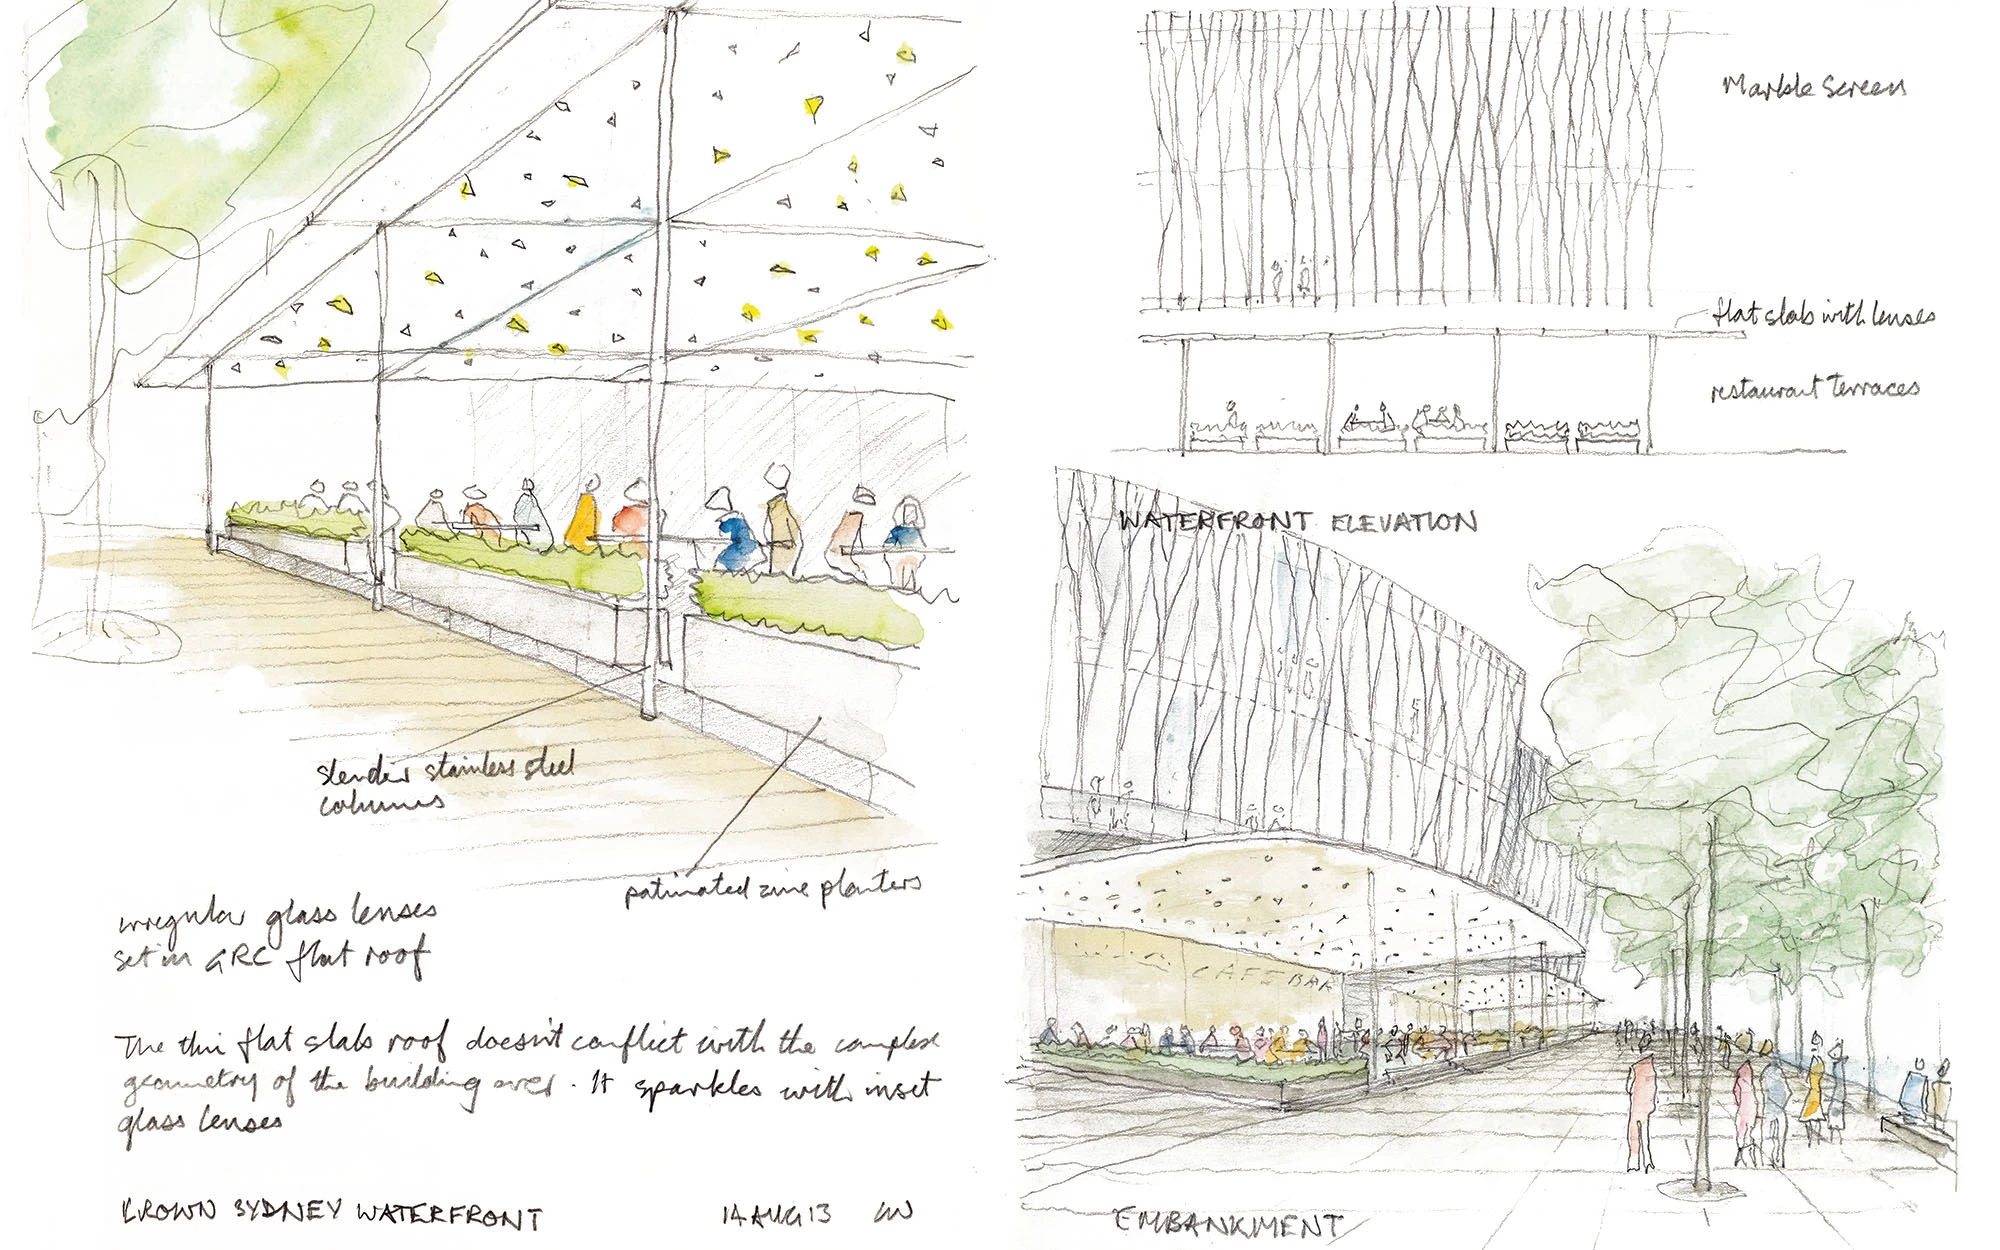 slender stainless steel
columns
patinated zinc planters
irregular glass lenses
set in GRC flat roof
The thin flat slab roof doesn't conflict with the complex
geometry of the building over. It sparkles with inset
glass lenses
CROWN SYDNEY WATERFRONT
14 AUG 13
Marble Screen
flat slab with lenses
restaurant terraces
WATERFRONT ELEVATION
CAFE BAR
EMBANKMENT